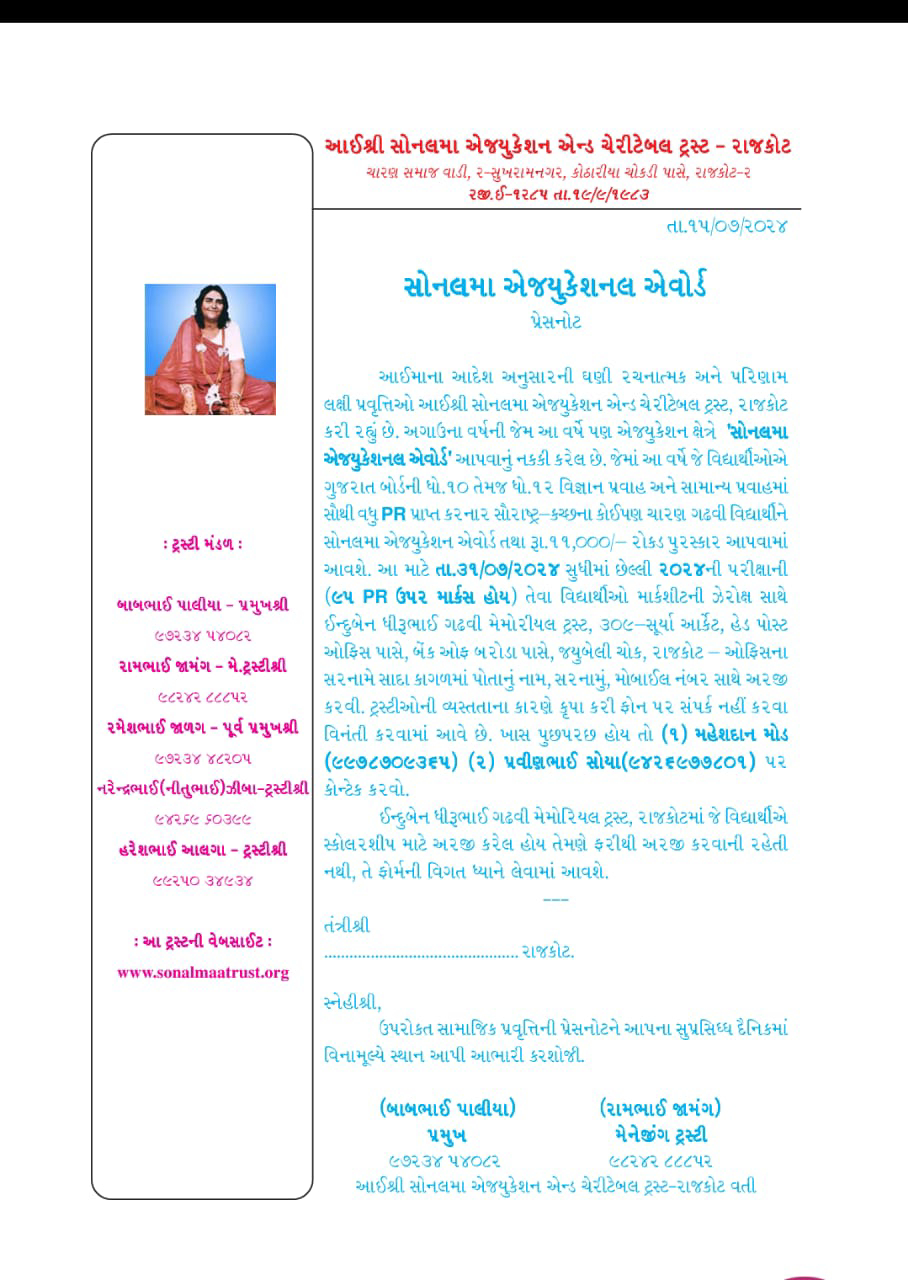 આઈશ્રી સોનલમા એજયુકેશન એન્ડ ચેરીટેબલ ટ્રસ્ટ – રાજકોટ
ચારણ સમાજ વાડી, ૨-સુખરામનગર, કોઠારીયા ચોકડી પાસે, રાજકોટ-૨
રજી.ઈ-૧૨૮૫ તા.૧૯/૯/૧૯૮૩
તા.૧૫/૦૭/૨૦૨૪
સોનલમા એજયુકેશનલ એવોર્ડ
પ્રેસનોટ
આઈમાના આદેશ અનુસારની ઘણી રચનાત્મક અને પરિણામ
લક્ષી પ્રવૃત્તિઓ આઈશ્રી સોનલમા એજયુકેશન એન્ડ ચેરીટેબલ ટ્રસ્ટ, રાજકોટ
કરી રહ્યું છે. અગાઉના વર્ષની જેમ આ વર્ષે પણ એજયુકેશન ક્ષેત્રે 'સોનલમા
એજયુકેશનલ એવોર્ડ' આપવાનું નકકી કરેલ છે. જેમાં આ વર્ષે જે વિદ્યાર્થીઓએ
ગુજરાત બોર્ડની ધો.૧૦ તેમજ ધો.૧૨ વિજ્ઞાન પ્રવાહ અને સામાન્ય પ્રવાહમાં
સૌથી વધુ PR પ્રાપ્ત કરનાર સૌરાષ્ટ્ર–કચ્છના કોઈપણ ચારણ ગઢવી વિદ્યાર્થીને
સોનલમા એજયુકેશન એવોર્ડ તથા રૂા.૧૧,૦૦૦/– રોકડ પુરસ્કાર આપવામાં
આવશે. આ માટે તા.૩૧/૦૭/૨૦૨૪ સુધીમાં છેલ્લી ૨૦૨૪ની પરીક્ષાની
(૯૫ PR ઉપર માર્કસ હોય) તેવા વિદ્યાર્થીઓ માર્કશીટની ઝેરોક્ષ સાથે
ઈન્દુબેન ધીરૂભાઈ ગઢવી મેમોરીયલ ટ્રસ્ટ, ૩૦૯–સૂર્યા આર્કેટ, હેડ પોસ્ટ
ઓફિસ પાસે, બેંક ઓફ બરોડા પાસે, જયુબેલી ચોક, રાજકોટ – ઓફિસના
સરનામે સાદા કાગળમાં પોતાનું નામ, સરનામું, મોબાઈલ નંબર સાથે અરજી
કરવી. ટ્રસ્ટીઓની વ્યસ્તતાના કારણે કૃપા કરી ફોન પર સંપર્ક નહીં કરવા
વિનંતી કરવામાં આવે છે. ખાસ પુછપરછ હોય તો (૧) મહેશદાન મોડ
(૯૯૭૮૭૦૯૩૬૫) (૨) પ્રવીણભાઈ સોયા(૯૪૨૬૯૭૭૮૦૧) પર
કોન્ટેક કરવો.
ઈન્દુબેન ધીરૂભાઈ ગઢવી મેમોરિયલ ટ્રસ્ટ, રાજકોટમાં જે વિદ્યાર્થીએ
સ્કોલરશીપ માટે અરજી કરેલ હોય તેમણે ફરીથી અરજી કરવાની રહેતી
નથી, તે ફોર્મની વિગત ધ્યાને લેવામાં આવશે.
---
તંત્રીશ્રી
.............................................. રાજકોટ.
સ્નેહીશ્રી,
ઉપરોકત સામાજિક પ્રવૃત્તિની પ્રેસનોટને આપના સુપ્રસિધ્ધ દૈનિકમાં
વિનામૂલ્યે સ્થાન આપી આભારી કરશોજી.
(બાબભાઈ પાલીયા) (રામભાઈ જામંગ)
પ્રમુખ મેનેજીંગ ટ્રસ્ટી
૯૭૨૩૪ ૫૪૦૮૨ ૯૮૨૪૨ ૮૮૮૫૨
આઈશ્રી સોનલમા એજયુકેશન એન્ડ ચેરીટેબલ ટ્રસ્ટ-રાજકોટ વતી
: ટ્રસ્ટી મંડળ :
બાબભાઈ પાલીયા – પ્રમુખશ્રી
૯૭૨૩૪ ૫૪૦૮૨
રામભાઈ જામંગ – મે.ટ્રસ્ટીશ્રી
૯૮૨૪૨ ૮૮૮૫૨
રમેશભાઈ જાળગ – પૂર્વ પ્રમુખશ્રી
૯૭૨૩૪ ૪૮૨૦૫
નરેન્દ્રભાઈ(નીતુભાઈ)ઝીબા-ટ્રસ્ટીશ્રી
૯૪૨૬૯ ૬૦૩૯૯
હરેશભાઈ આલગા – ટ્રસ્ટીશ્રી
૯૯૨૫૦ ૩૪૯૩૪
: આ ટ્રસ્ટની વેબસાઈટ :
www.sonalmaatrust.org